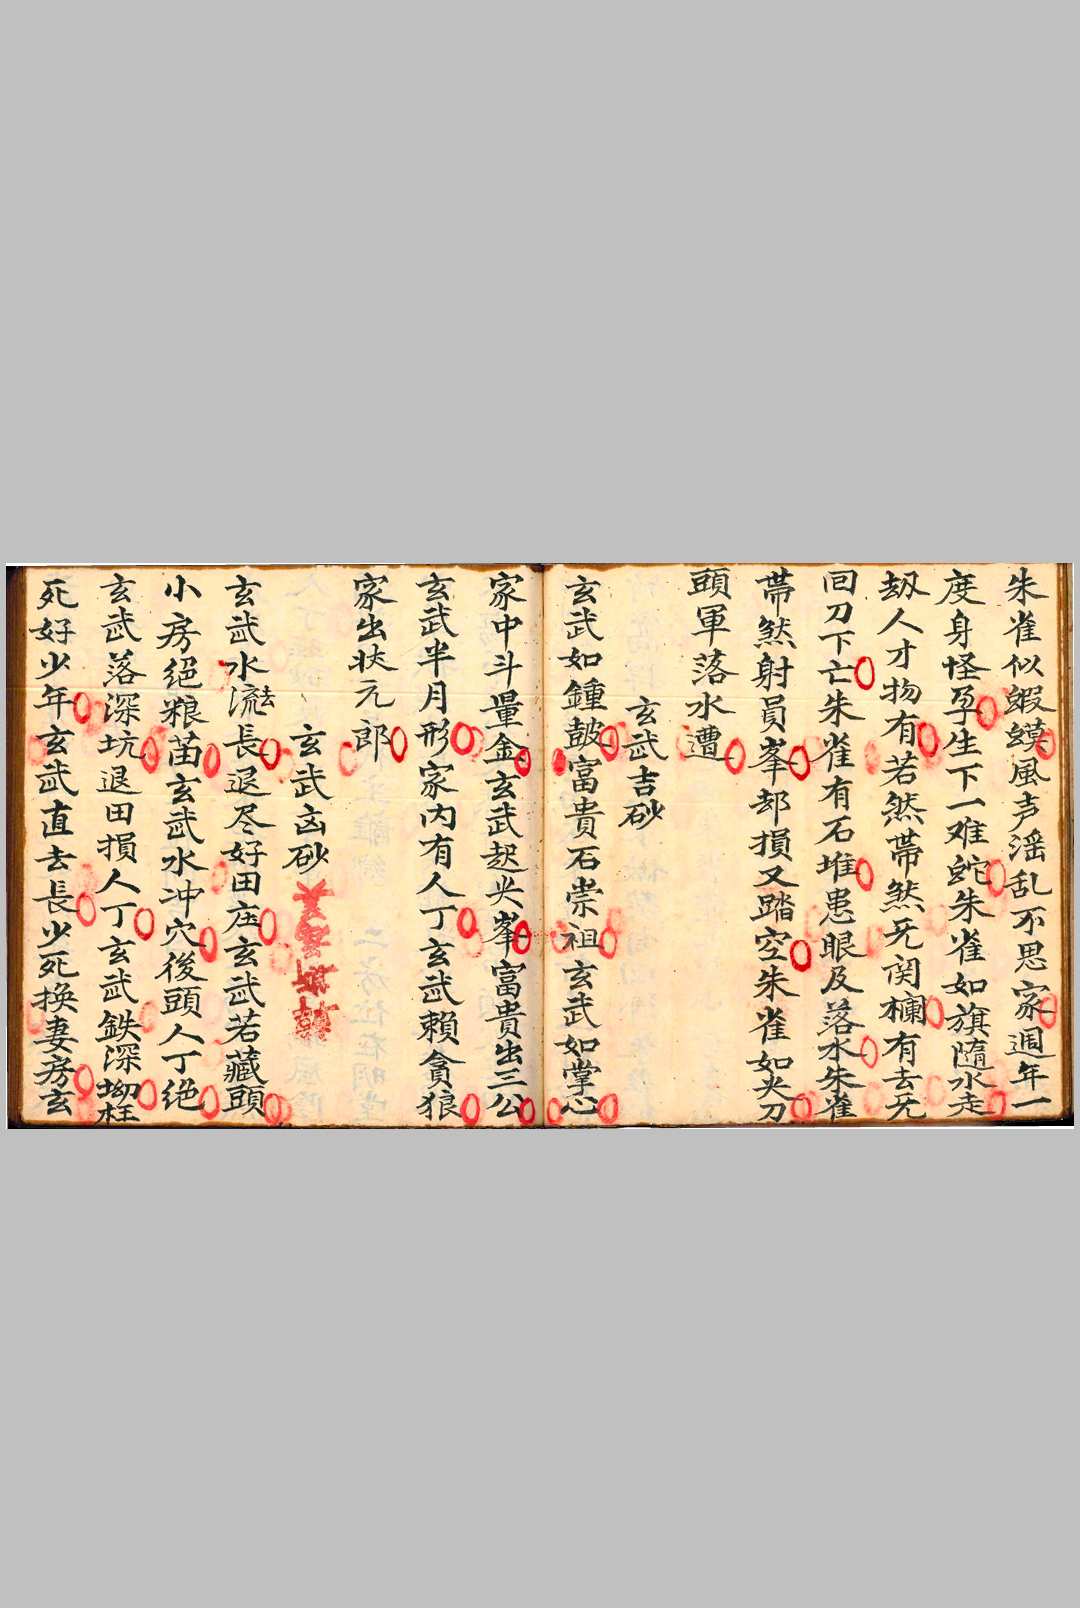 朱雀似蝦蟆風声滛乱不思家週年一
度身怪孕生下一难蛇朱雀如旗隨水走
刼人才物有若然帶煞旡関欄有去旡
囘刀下亡朱雀有石堆患眼及落水朱雀
帶煞射員峯却損又踏空朱雀如尖刀
頭軍落水遭
玄武吉砂
玄武如鍾皷富貴石崇祖玄武如掌心
家中斗量金玄武起尖峯富貴出三公
玄武半月形家内有人丁玄武賴貪狼
家出状元郎
玄武凶砂
玄武水流去長退尽好田庄玄武若藏頭
小房絕粮苗玄武水冲穴後頭人丁絕
玄武落深坑退田損人丁玄武鉄深坳枉
死好少年玄武直去長少死換妻房玄